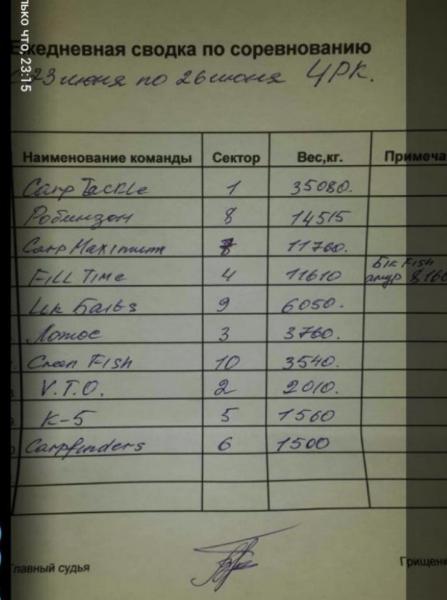 лько что, 23:15
Ежедневная сводка по соревнованию
23 июня по 26 июня ЧРК.
Наименование команды Сектор Вес,кг. Примеча
Carp Tackle 1 35080.
Робинзон 8 14515
Carp Maximum 7 11760.
Fill Time 4 11610 Big Fish
амур 8,160
9 6050.
Лотос 3 3760.
Fish 10 3540.
V.T.O. 2 2010.
К-5 5 1560
Carpfinders 6 1500
лавный судья Грищенк